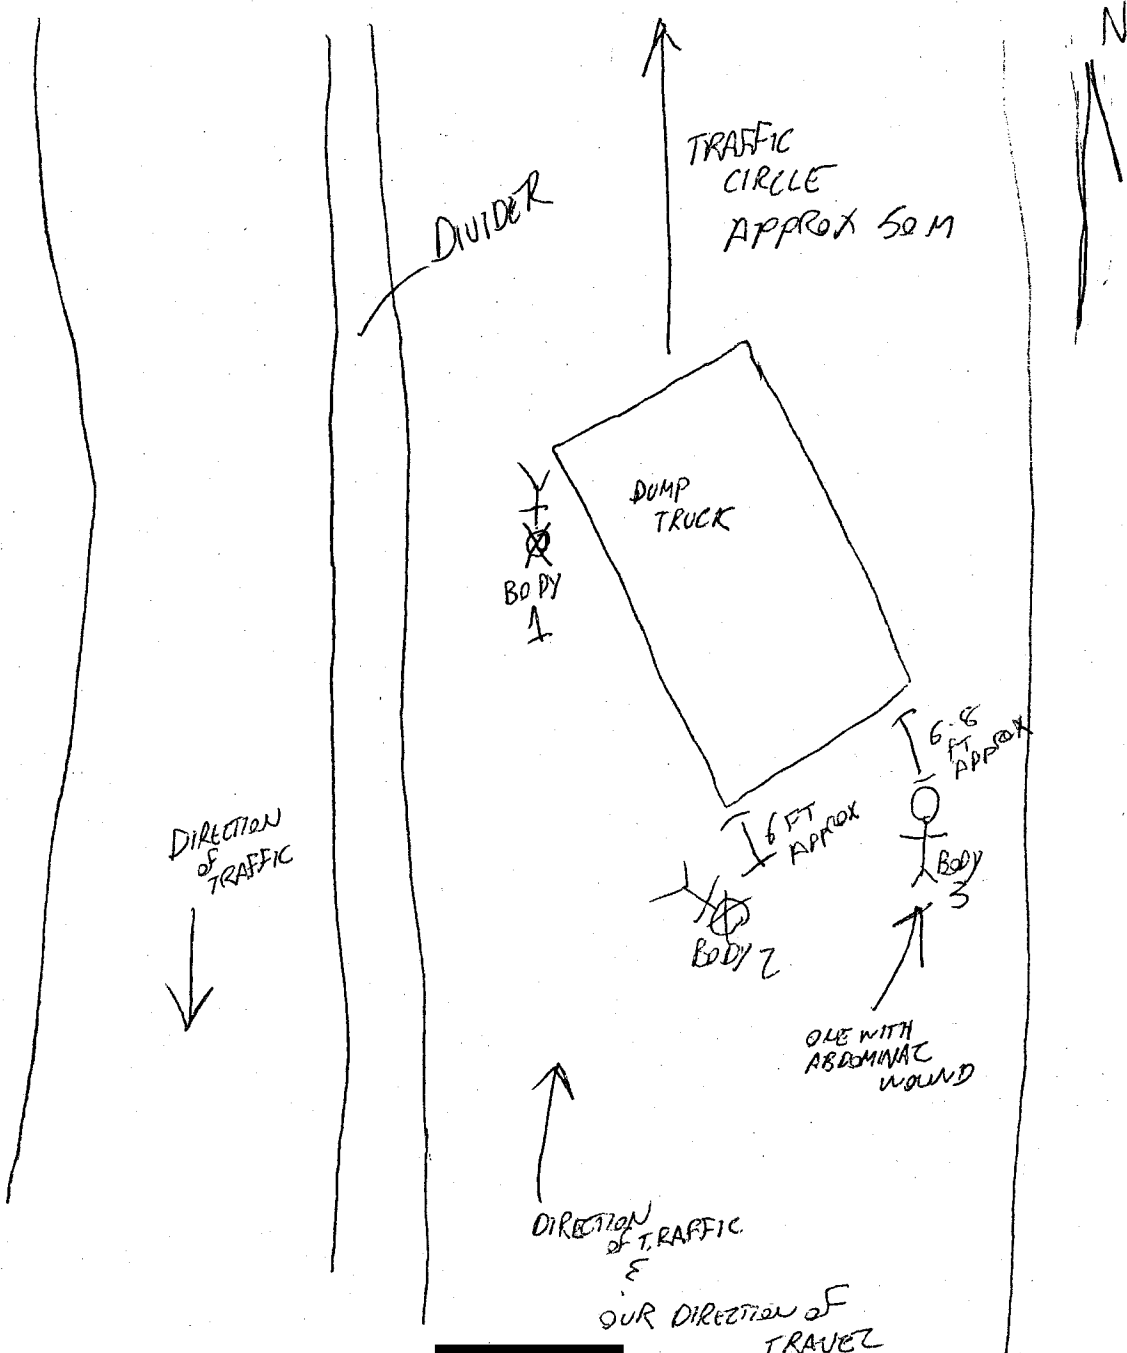 N
TRAFFIC
CIRCLE
APPROX 50 M
DIVIDER
DUMP
TRUCK
BODY
1
6-8
FT
APPROX
6 FT
APPROX
BODY
3
BODY 2
DIRECTION
of
TRAFFIC
ONE WITH
ABDOMINAL
WOUND
DIRECTION
of TRAFFIC
&
OUR DIRECTION of
TRAVEL